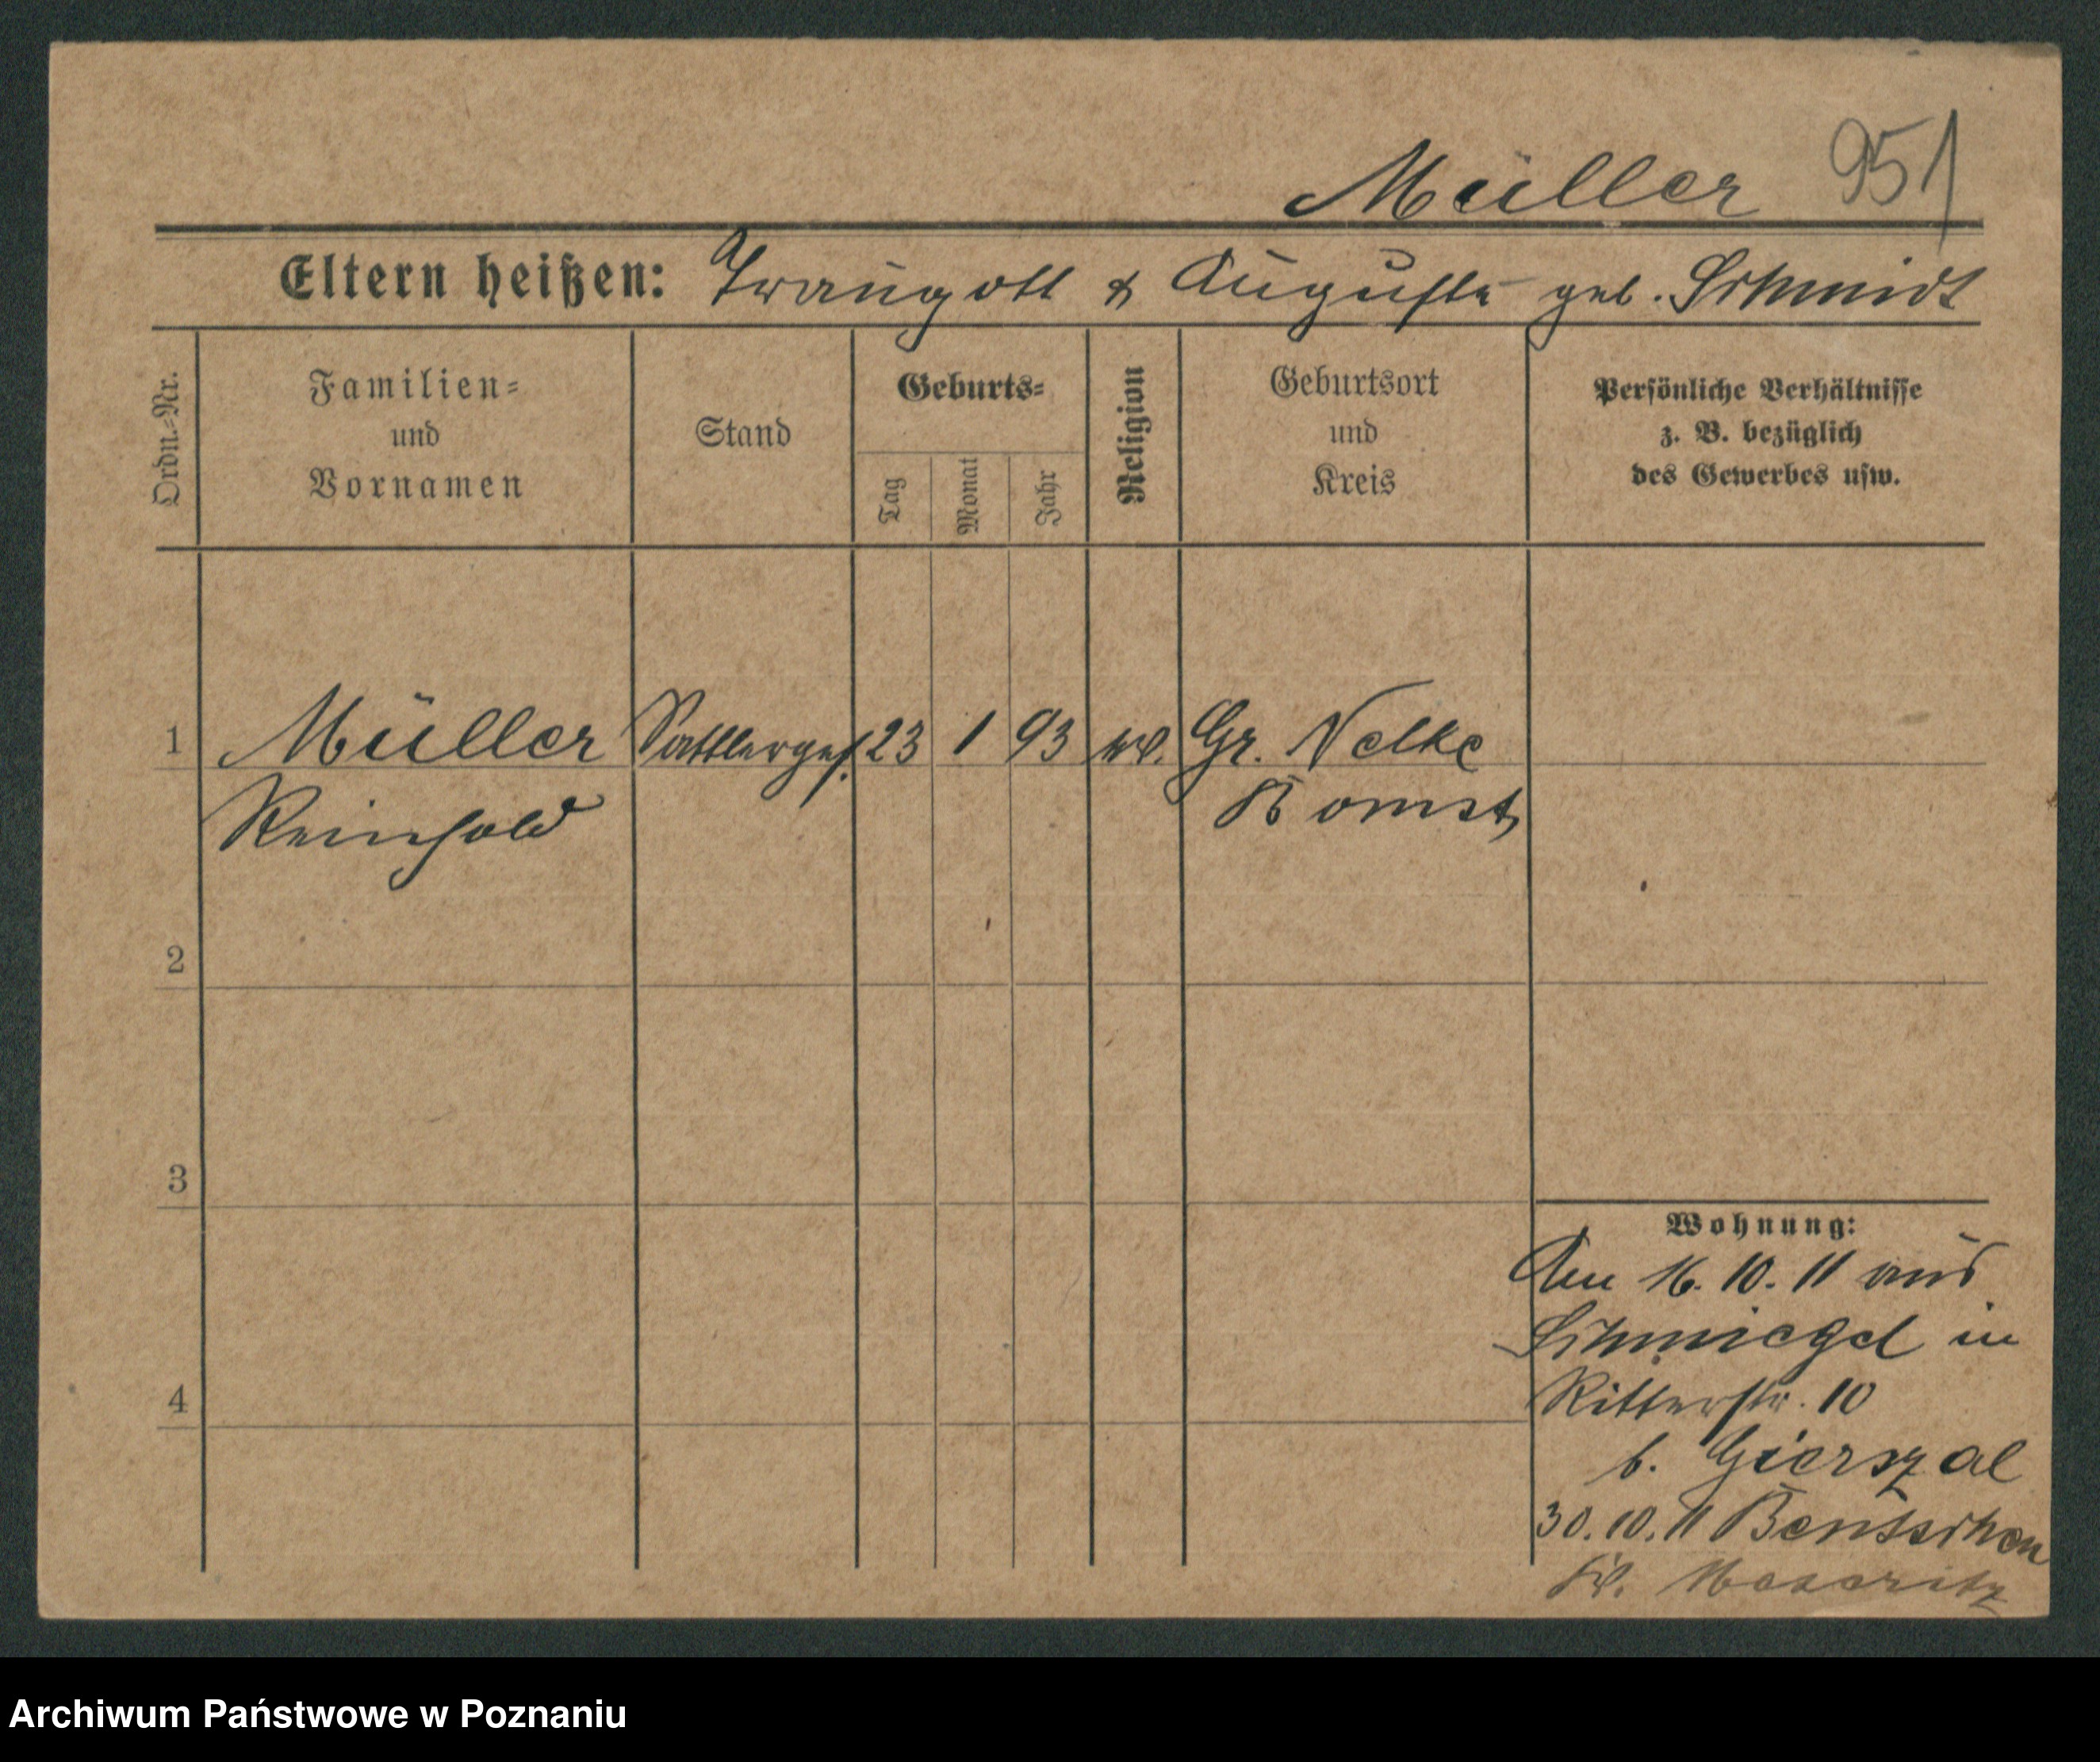 Müller 951
Eltern heißen: Traugott & Auguste geb. Schmidt
Ordn.-Nr.
Familien-
und
Vornamen
Stand
Geburts-
Tag
Monat
Jahr
Religion
Geburtsort
und
Kreis
Persönliche Verhältnisse
z. B. bezüglich
des Gewerbes usw.
1 Müller Sattlerges. 23 1 93 ev. Gr. Nelke
Reinhold Bomst
2
3
4
Wohnung:
Am 16.10.11 aus
Schmiegel in
Ritterstr. 10
b. Gierszal
30.10.11 Bentschen
Kr. Meseritz
Archiwum Państwowe w Poznaniu